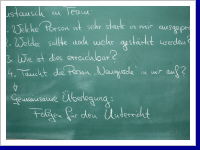 ustausch im Team:
1. Welche Person ist sehr stark in mir ausgepr
2. Welche sollte noch mehr gestärkt werden?
3. Wie ist dies erreichbar?
4. Taucht die Person in mir auf?
Gemeinsame Überlegung:
Folgen für den Unterricht